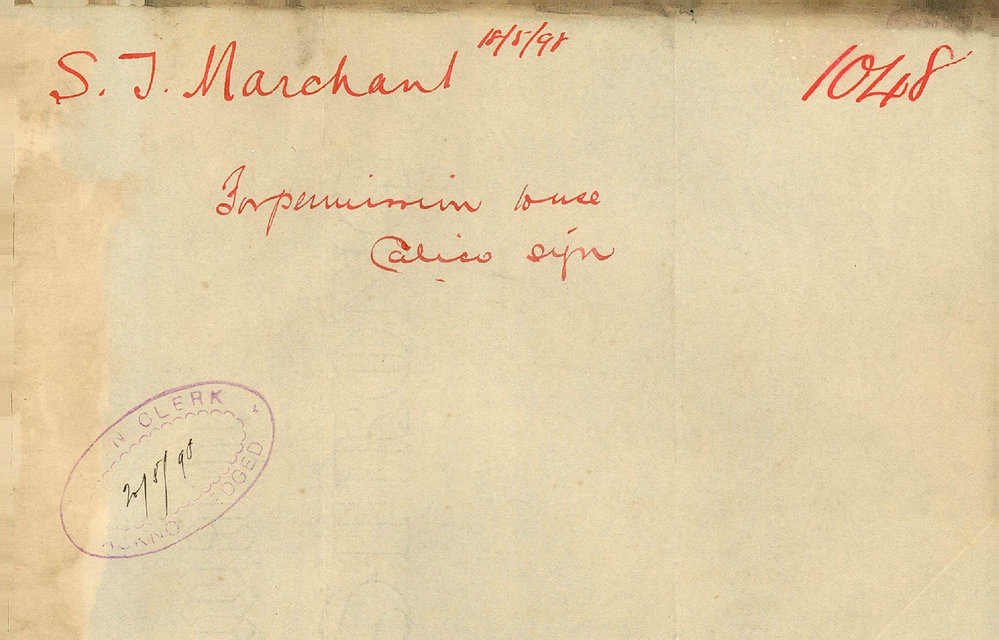 S. T. Marchant 18/5/98 1048
For permission to use
Calico sign
N CLERK
20/5/98
ACKNO EDGED